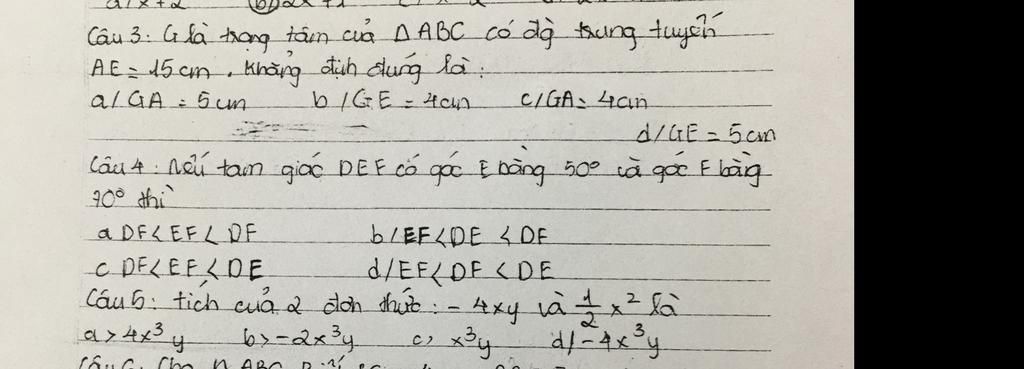 Câu 3: G là trọng tâm của Δ ABC có đg̀ trung tuyến
AE = 15cm. Khẳng định đúng là:
a/ GA = 5cm b/ GE = 4cm c/ GA = 4cm
d/ GE = 5cm
Câu 4: Nếu tam giác DEF có góc E bằng 50° và góc F bằng
70° thì
a DF < EF < DF b/ EF < DE < DF
c DF < EF < DE d/ EF < DF < DE
Câu 5: tích của 2 đơn thức: - 4xy và 1/2 x² là
a> 4x³y b> -2x³y c> x³y d/ -4x³y